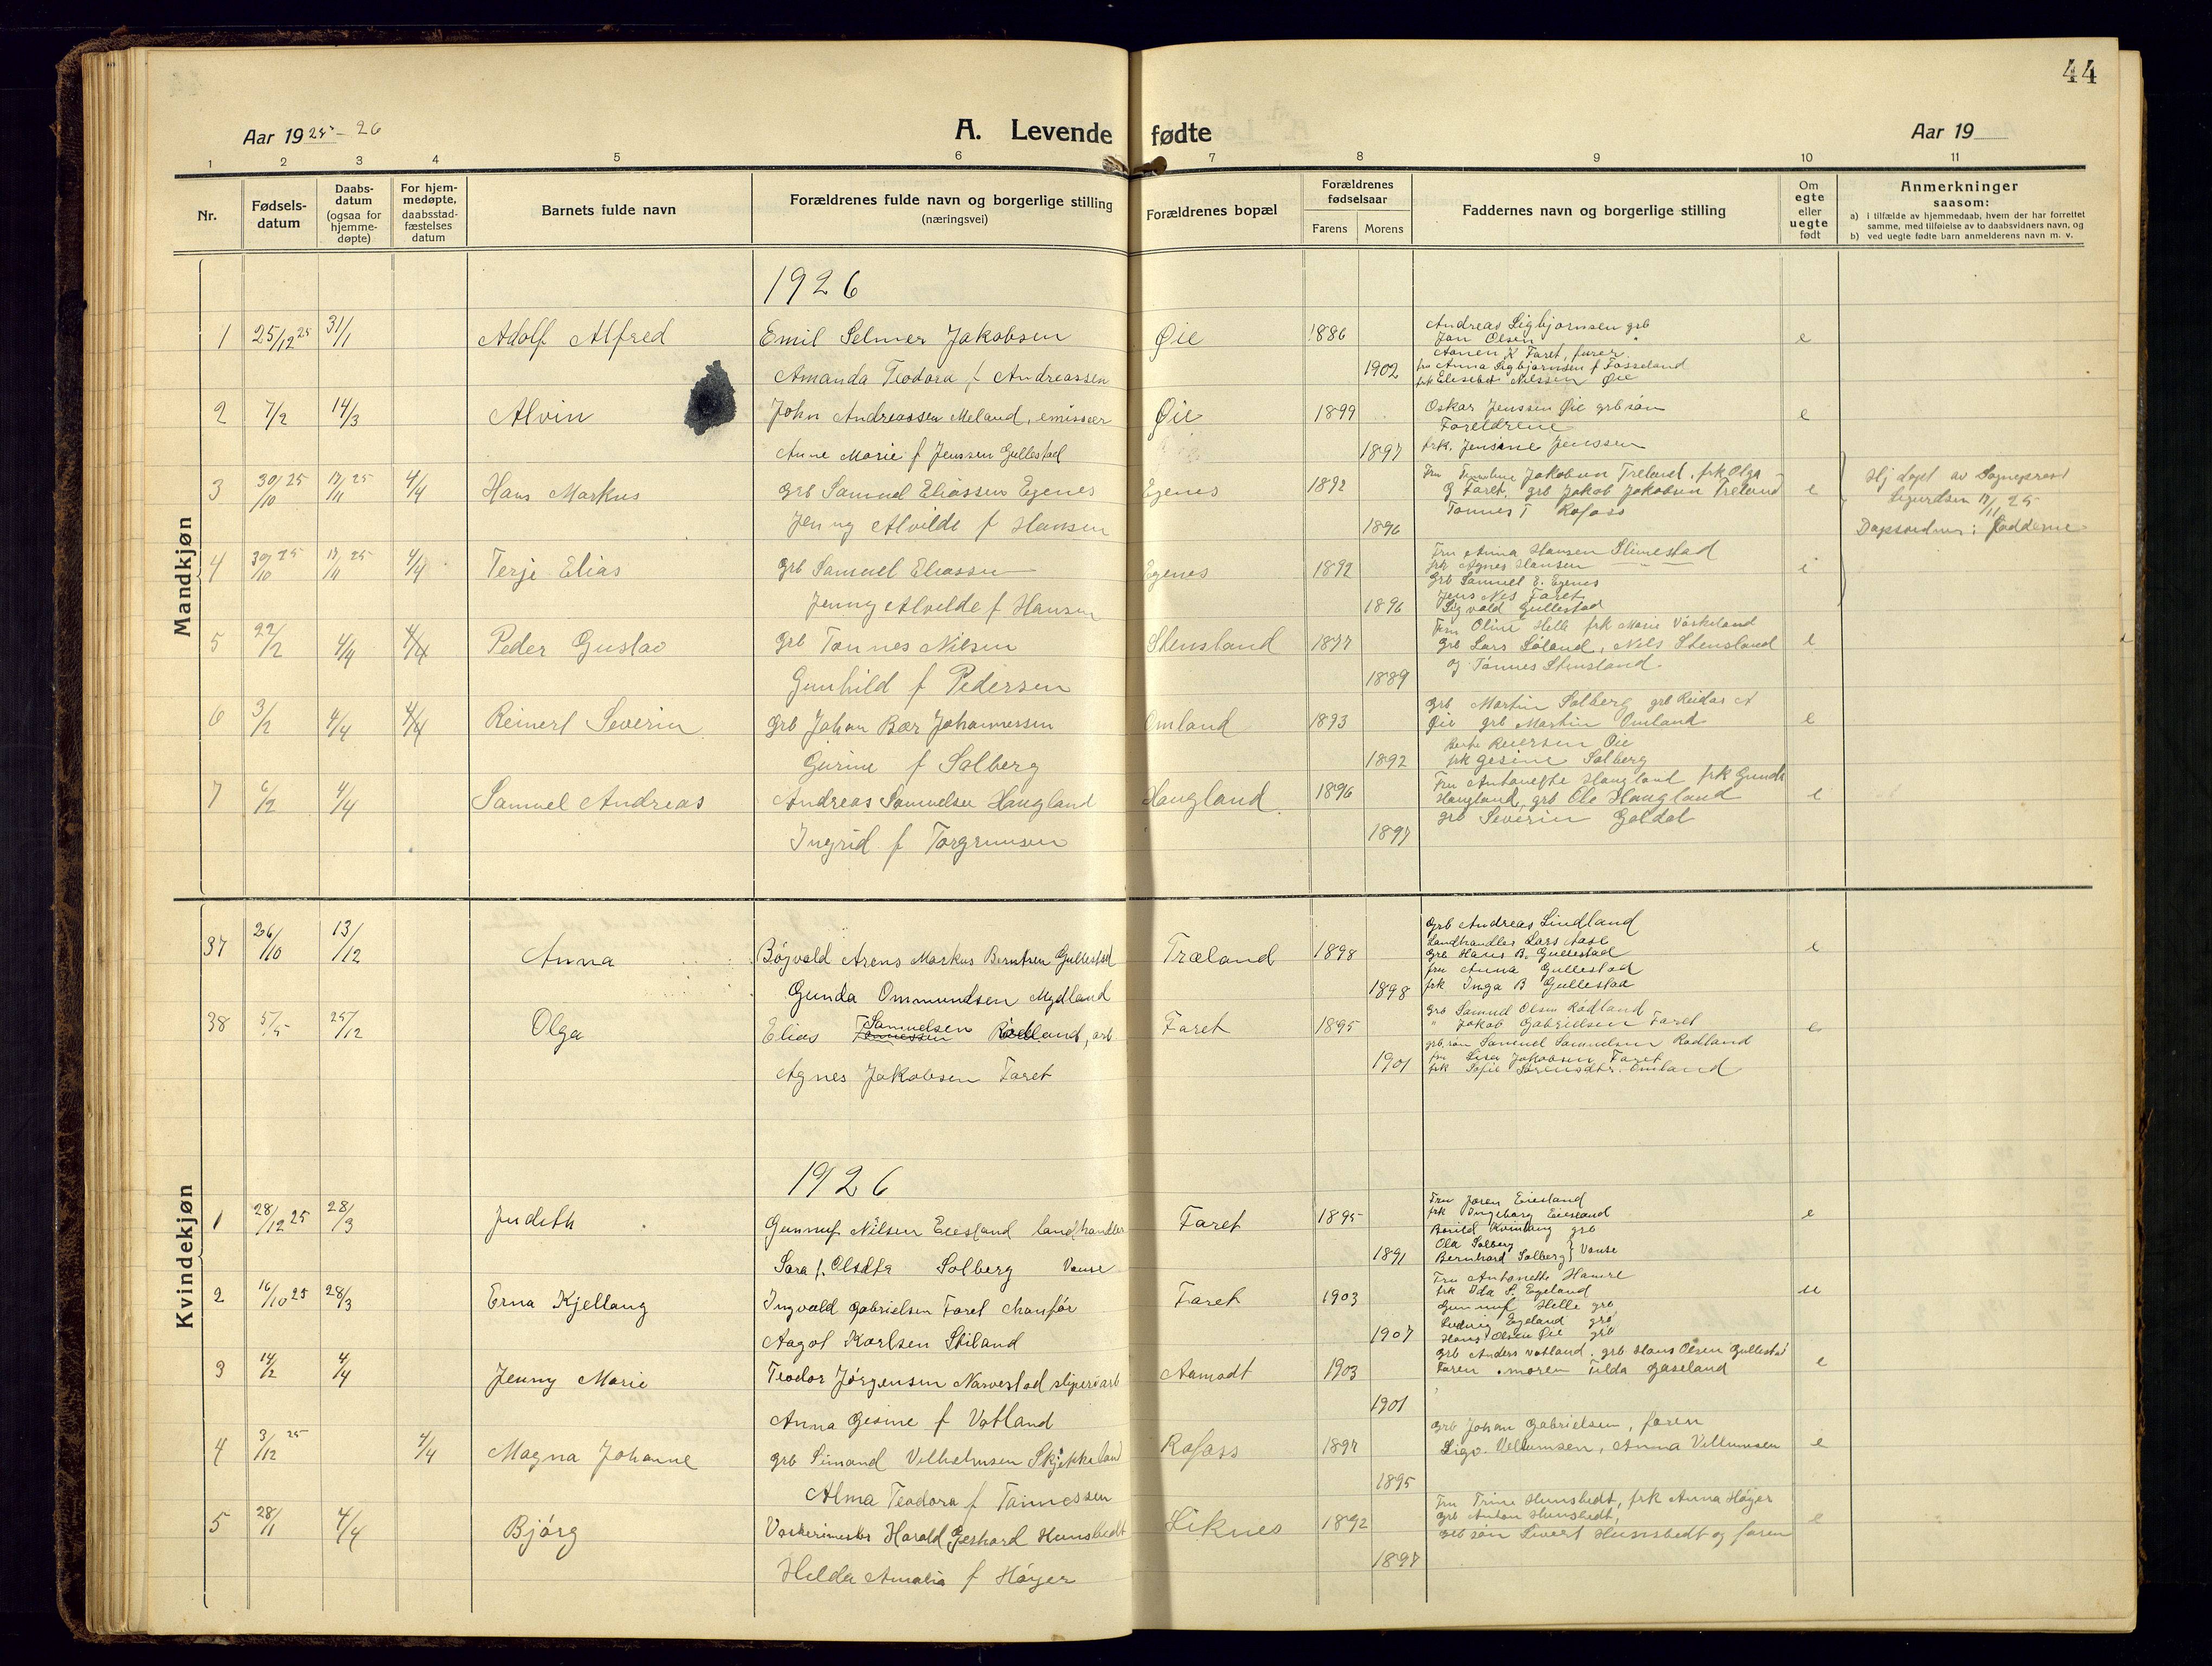 44
Aar 1925-26
A. Levende fødte
Aar 19
1 2 3 4 5 6 7 8 9 10 11
Nr.
Fødsels-
datum
Daabs-
datum
(ogsaa for
hjemme-
døpte)
For hjem-
medøpte,
daabsstad-
fæstelses
datum
Barnets fulde navn
Forældrenes fulde navn og borgerlige stilling
(næringsvei)
Forældrenes bopæl
Forældrenes
fødselsaar
Farens Morens
Faddernes navn og borgerlige stilling
Om
egte
eller
uegte
født
Anmerkninger
saasom:
a) i tilfælde av hjemmedaab, hvem der har forrettet
samme, med tilføielse av to daabsvidners navn, og
b) ved uegte fødte barn anmelderens navn m. v.
Mandkjøn
1926
1 25/12 25 31/1 Adolf Alfred Emil Selmer Jakobsen Øie 1886 e
Amanda Teodora f Andreassen 1902
Andreas Sigbjørnsen grb
Jan Olsen "
Faret, furer
fru Anna Sigbjørnsen f Fosseland
frk Elisabet Nilssen Øie
2 7/2 14/3 Alvin John Andreassen Meland, emissær Øie 1899 e
Anne Marie f Jenssen Gullestad 1897
Oskar Jenssen Øie grb søn
Foreldrene
frk. Jensine Jenssen
3 30/10 25 17/11 25 4/4 Hans Markus grb Samuel Eliassen Egenes Egenes 1892 e
Jenny Alvilde f Hansen 1896
Fru Jakobsen Treland, frk Olga
G Faret, grb Jakob Jakobsen Treland
Tønnes T Rafoss
Hj døpt av Sogneprest
Sigurdsen 17/11 25
Dåpsvidner: Fadderne
4 30/10 25 17/11 25 4/4 Terje Elias grb Samuel Eliassen Egenes 1892 e
Jenny Alvilde f Hansen 1896
Fru Anna Hansen Slimestad
frk Agnes Hansen
Grb Samuel E. Egenes
Jens Nes Faret
Sigvald Gullestad
5 22/2 4/4 4/4 Peder Gustav grb Tønnes Nilsen Stensland 1877 e
Gunhild f Pedersen 1889
Fru Oline Helle frk Marie Våskeland
grb Lars Løland, Nils Stensland
og Tønnes Stensland.
6 3/2 4/4 4/4 Reinert Severin grb Johan Bær Johannessen Omland 1893 e
Gurine f Solberg 1892
grb Martin Solberg grb Reidar A
Øie grb Martin Omland
Berte Reiersen Øie
frk Gesine Solberg
7 6/2 4/4 Samuel Andreas Andreas Samuelsen Haugland Haugland 1896 e
Ingrid f Torgrimsen 1897
Fru Antonette Haugland frk Gunda
Haugland, grb Ole Haugland
grb Severin Goldal
Kvindekjøn
37 26/10 13/12 Anna Bøjvald Arens Markus Berntsen Gullestad Træland 1898 e
Gunda Ommundsen Mydland 1898
Grb Andreas Lindland
Landhandler Lars Aase
Grb Hans B. Gullestad
fru Anna Gullestad
frk Inga B Gullestad
38 5/5 25/12 Olga Elias Samuelsen Rødland, arb Faret 1895 e
Agnes Jakobsen Faret 1901
Grb Samuel Olsen Rødland
" Jakob Gabrielsen Faret
grb. søn Samuel Samuelsen Rødland
fru Lisa Jakobsen Faret
frk Sofie Sørensdtr. Omland
1926
1 28/12 25 28/3 Judith Gunnuf Nilsen Eiesland landhandler Faret 1895 e
Sara f. Olsdtr Solberg Vanse 1891
Fru Joren Eiesland
frk Ingeborg Eiesland
Bøvild Kvinlaug grb
Ola Solberg
Bernhard Solberg } Vanse
2 16/10 25 28/3 Erna Kjellaug Ingvald Gabrielsen Faret chauffør Faret 1903 u
Aagot Karlsen Stiland 1907
Fru Antonette Hamre
frk Ida S. Egeland
Gunnuf Helle grb
Ludvig Egeland grb
Hans Olsen Øie grb
3 14/2 4/4 Jenny Marie Teodor Jørgensen Narvestad sliperiarb Aamodt 1903 e
Anna Gesine f Vatland 1901
Grb Anders Vatland. grb Hans Olsen Gullestad
Faren . moren Tilda Gaseland
4 3/12 25 4/4 Magna Johanne grb Simand Vilhelmsen Skjekkeland Rafoss 1897 e
Alma Teodora f Tønnessen 1895
Grb Johan Gabrielsen, faren
Sigv. Villumsen, Anna Villumsen
5 28/1 4/4 Bjørg Verkmester Harald Gerhard Hunsbedt Liknes 1892 e
Helda Amalia f Høyer 1897
Fru Trine Hunsbedt, frk Anna Høyer
grb Anton Hunsbedt,
grb søn Sivert Hunsbedt og faren